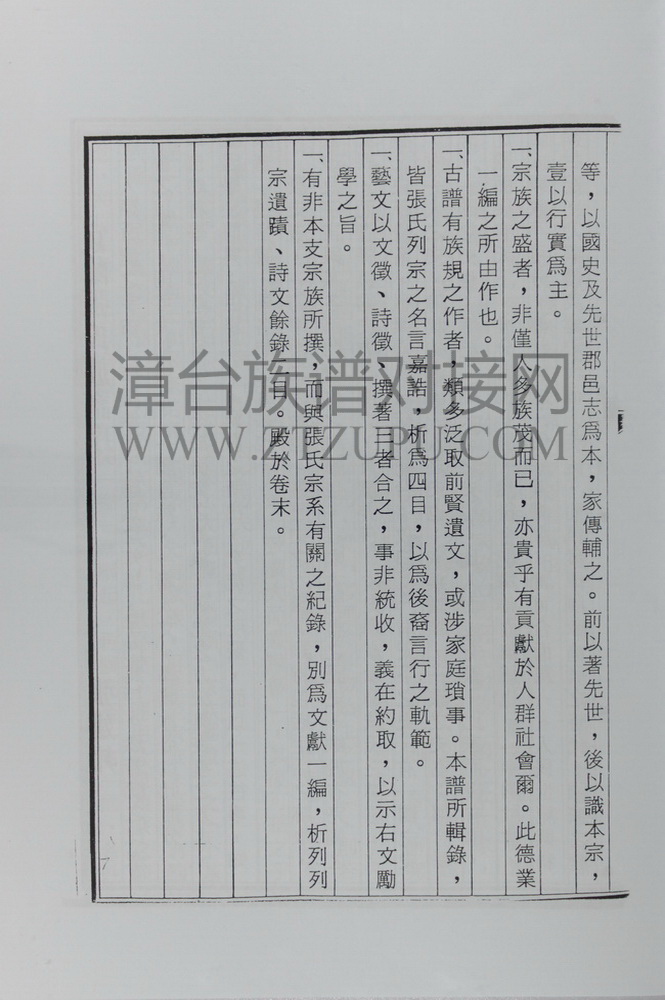 等，以國史及先世郡邑志爲本，家傳輔之。前以著先世，後以識本宗，
壹以行實爲主。
一、宗族之盛者，非僅人多族茂而已，亦貴乎有貢獻於人群社會爾。此德業
一編之所由作也。
一、古譜有族規之作者，類多泛取前賢遺文，或涉家庭瑣事。本譜所輯錄，
皆張氏列宗之名言嘉誥，析爲四目，以爲後裔言行之軌範。
一、藝文以文徵、詩徵、撰著三者合之，事非統收，義在約取，以示右文勵
學之旨。
一、有非本支宗族所撰，而與張氏宗系有關之紀錄，別爲文獻一編，析列列
宗遺蹟、詩文餘錄二目。殿於卷末。
漳台族谱对接网
WWW.ZTZUPU.COM